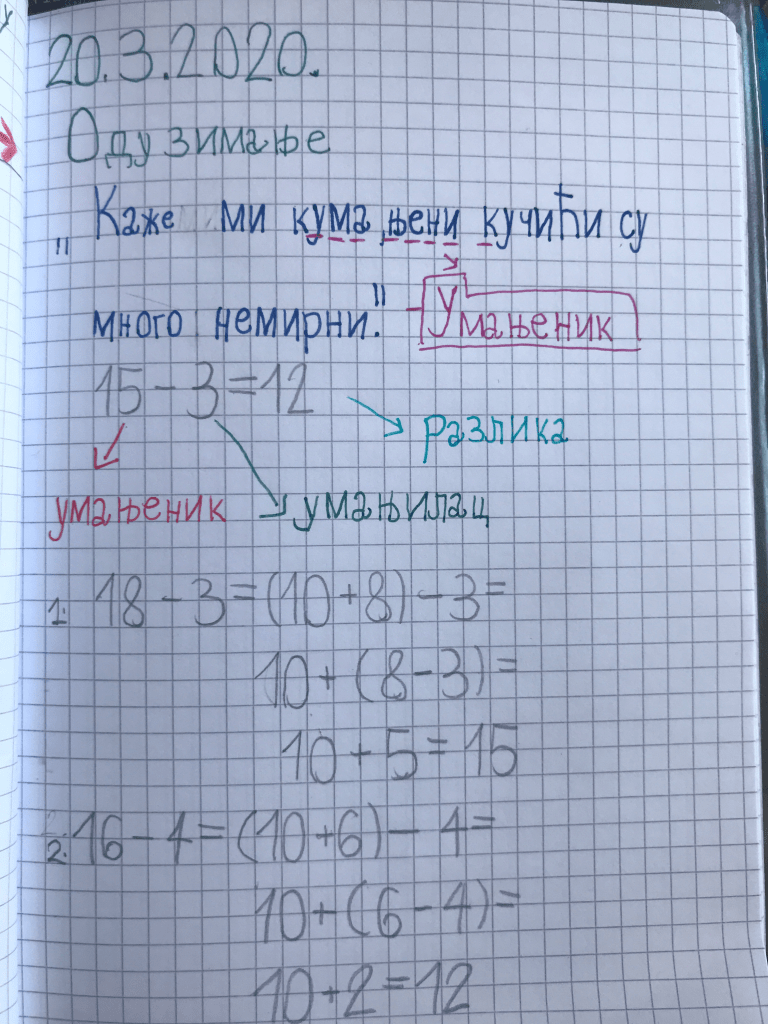 20.3.2020.
Одузимање
„Каже ми кума њени кучићи су
много немирни." - Умањеник
15-3=12
разлика
умањеник умањилац
1. 18-3=(10+8)-3=
10+(8-3)=
10+5=15
2. 16-4=(10+6)-4=
10+(6-4)=
10+2=12